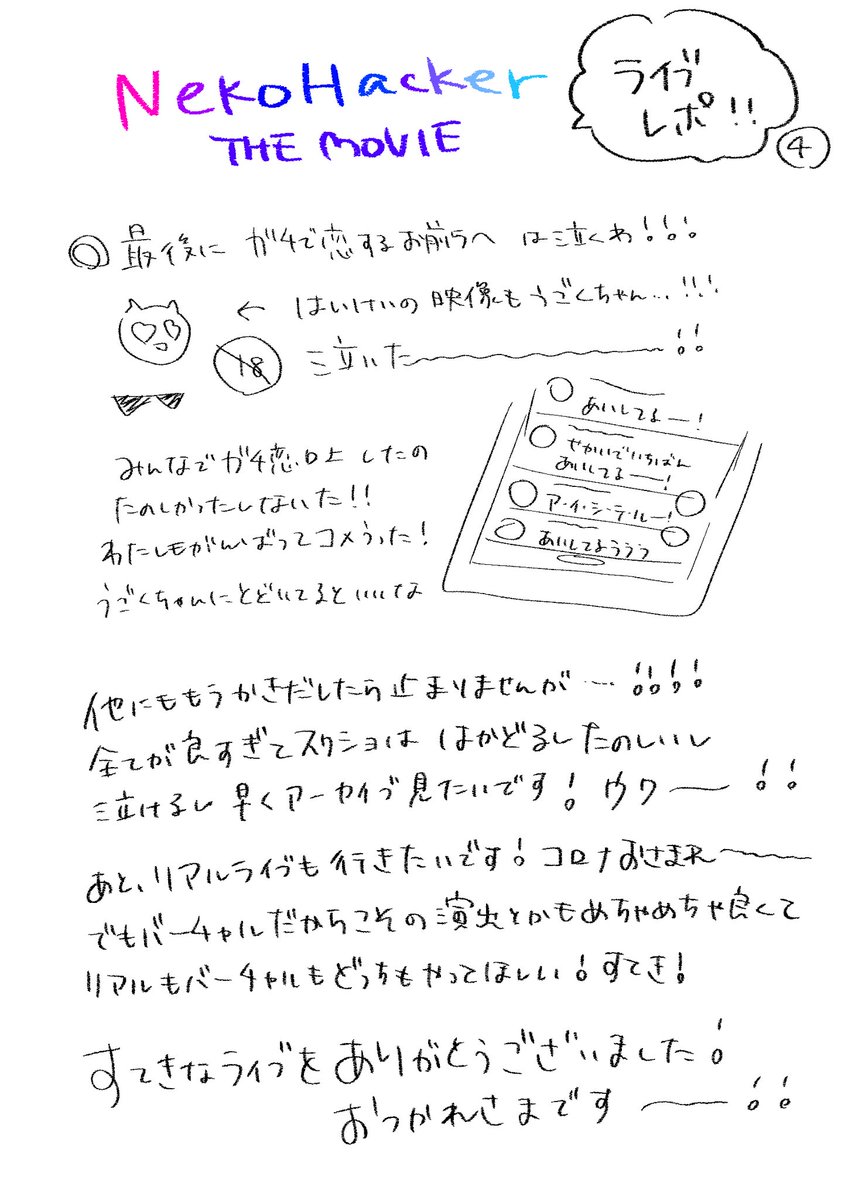 NekoHacker
THE MOVIE
ライブ
レポ!!
4
◎最後に ガチで恋するお前らへ は泣くわ!!!
← はいけいの映像もうごくちゃん…!!!
18
泣いた〜〜〜!!
みんなでガチ恋口上したの
たのしかったしないた!!
わたしもがんばってコメうった!
うごくちゃんにとどいてるといいな
あいしてるー!
せかいでいちばん
あいしてるー!
ア・イ・シ・テ・ルー!
あいしてようううう
他にももうかきだしたら止まりませんが…!!!!
全てが良すぎてスクショは はかどるしたのしいし
泣けるし早くアーカイブ見たいです!ウワー!!
あと、リアルライブも行きたいです!コロナおさまれ〜〜
でもバーチャルだからこその演出とかもめちゃめちゃ良くて
リアルもバーチャルもどっちもやってほしい!すてき!
すてきなライブをありがとうございました!
おつかれさまですー!!